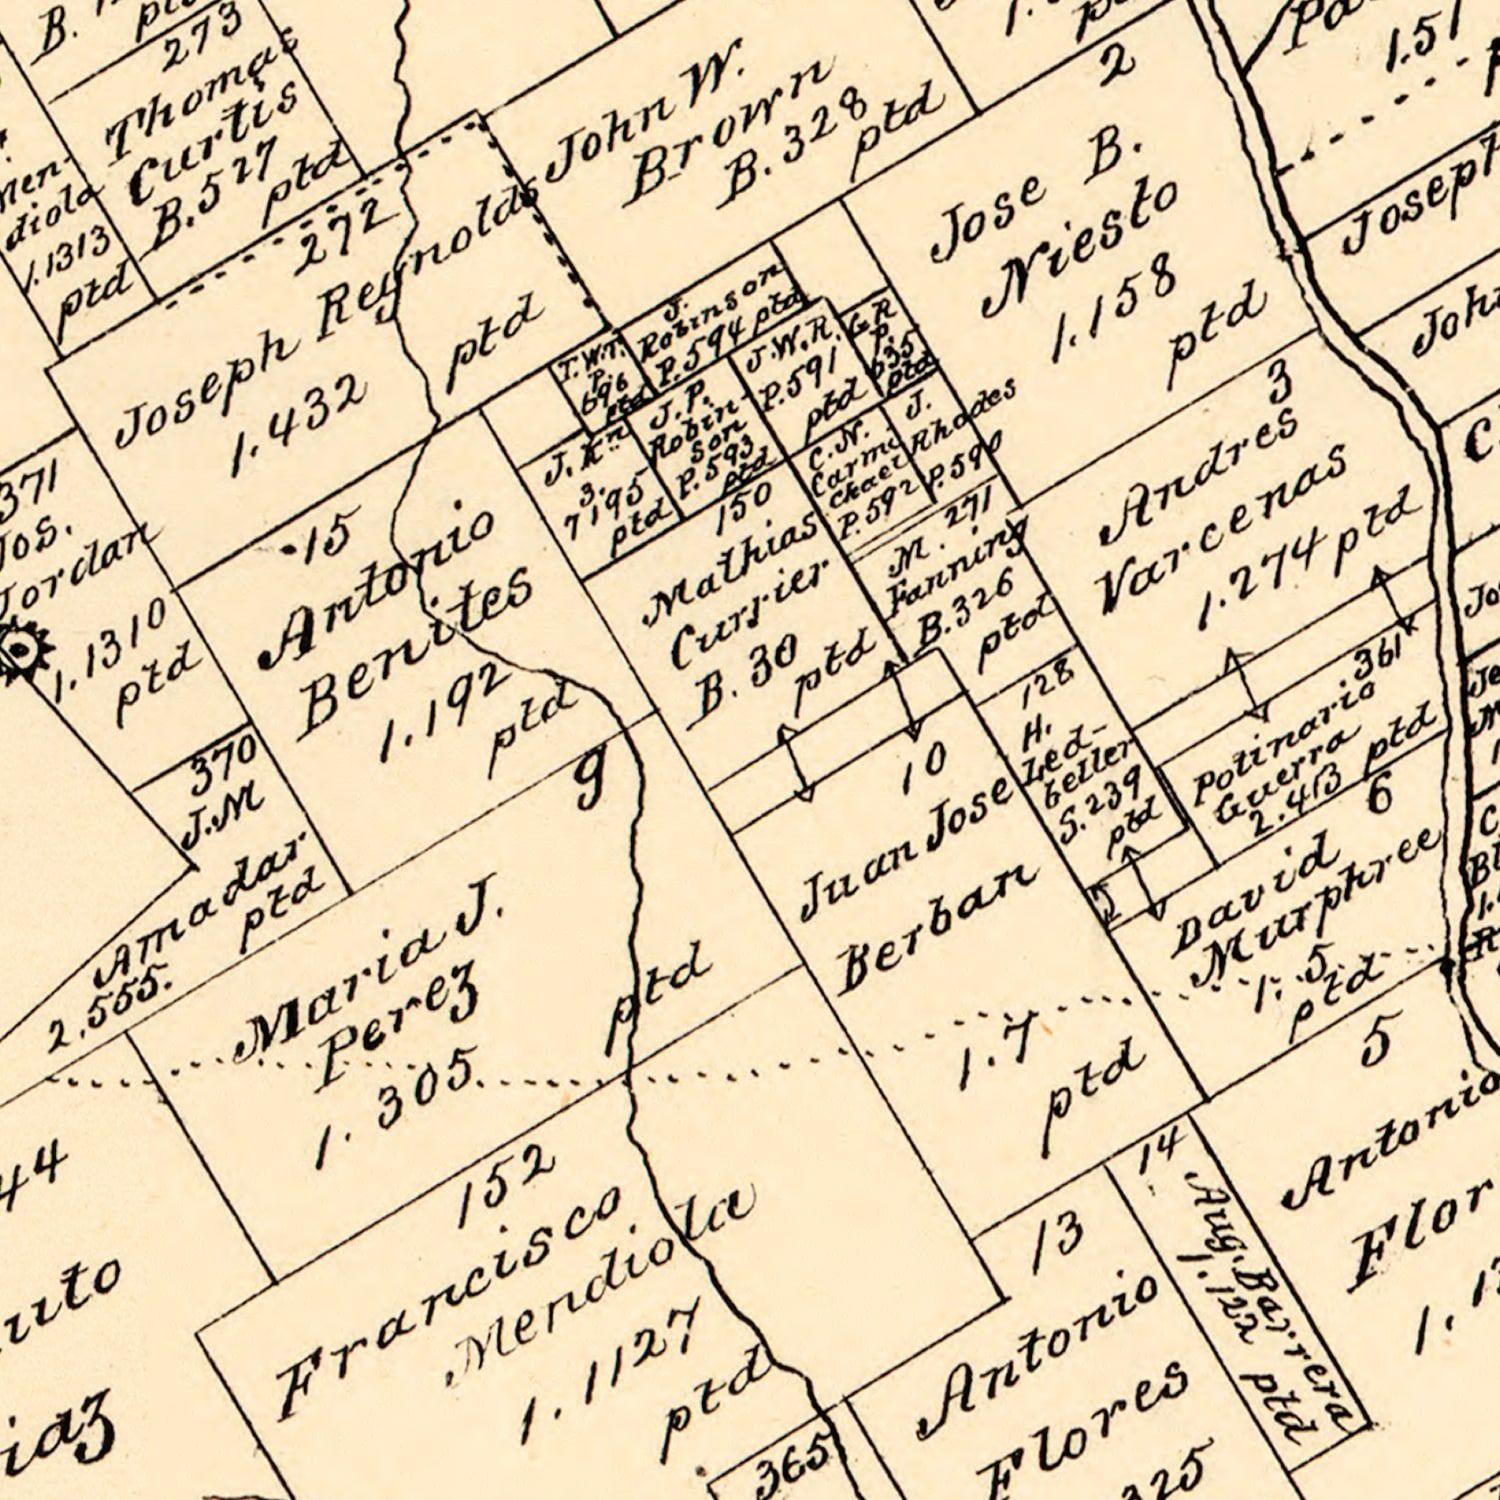 B.
273
Thomas
Curtis
B. 527
ptd
diola
1.1313
ptd
272
Joseph Reynolds
1.432
ptd
John W.
Brown
B. 328
ptd
2
Jose B.
Niesto
1.158
ptd
1.51
Joseph
J.
Robinson
P. 594 ptd
T.W.T.
P.
696
ptd
J. P.
Robin-
son
P. 593
ptd
J.W.R.
P. 591
ptd
G.R
P.
635
ptd
3.
7195
ptd
C. N.
Carmi
chael
P. 592
J.
Rhodes
P. 590
371
Jos.
Jordan
1.1310
ptd
15
Antonio
Benites
1.192
ptd
150
Mathias
Currier
B. 30
ptd
271
M.
Fanning
B. 326
ptd
3
Andres
Varcenas
1.274 ptd
370
J.M
Amadar
2.555.
ptd
9
Maria J.
Perez
1.305
ptd
10
Juan Jose
Berban
1.7
ptd
128
H.
Led-
better
S. 239
ptd
361
Potinario
Guerra
2.413 ptd
6
David
Murphree
1.5
ptd
44
152
Francisco
Mendiola
1.1127
ptd
13
Antonio
Flores
325
14
Aug. Barrera
1.122 ptd
5
Antonio
Flor
365